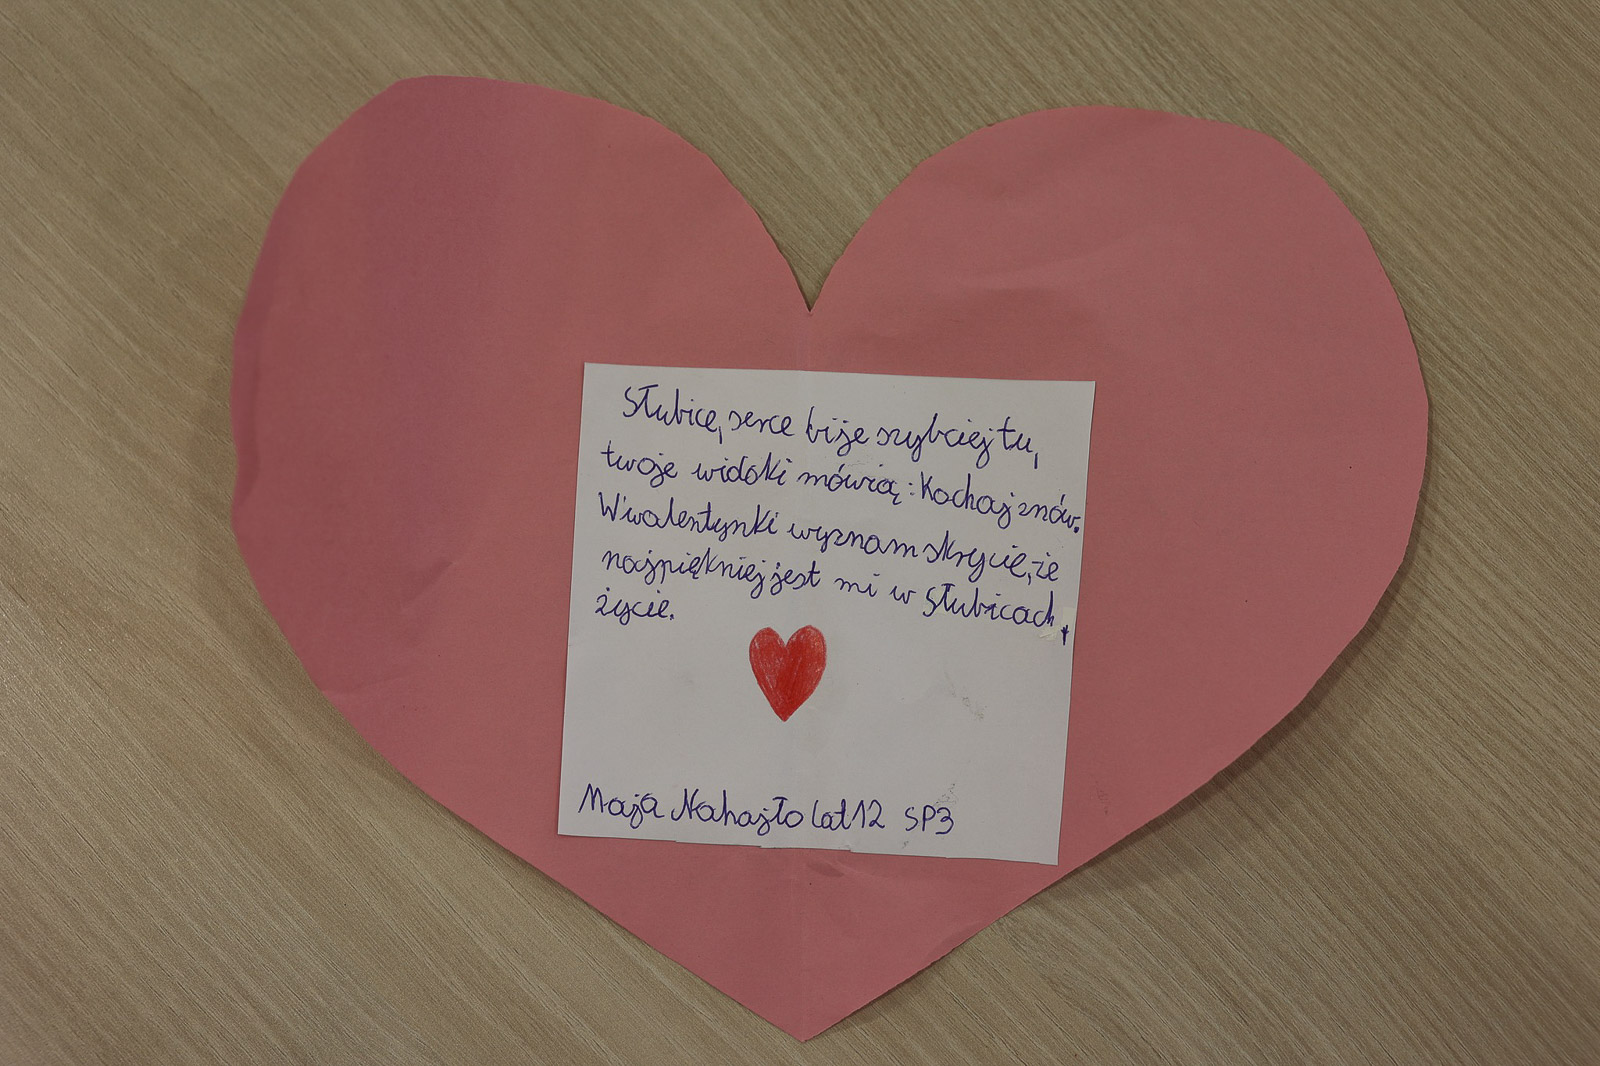 Słubice, serce bije szybciej tu,
twoje widoki mówią: Kochaj znów.
W walentynki wyznam skrycie, że
najpiękniej jest mi w Słubicach,
życie.
Maja Nahajło lat 12 SP3